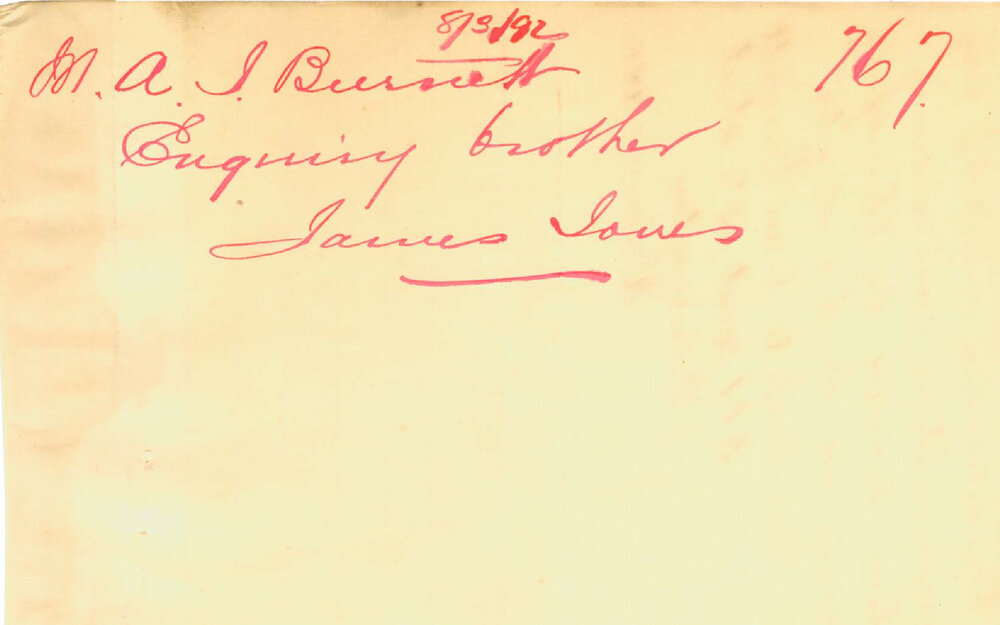 8/3/92
M. A. J. Burnett 767.
Enquiry brother
James Jones